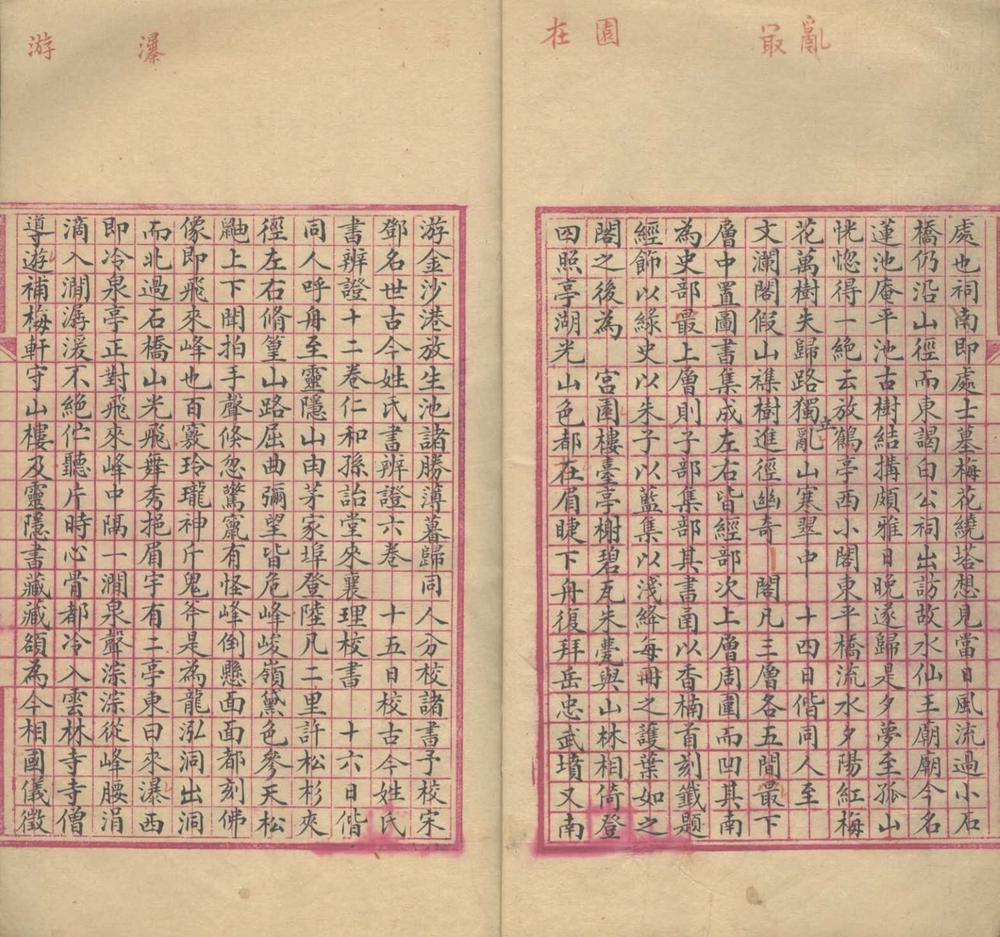 亂
最
園
在
處也祠南即處士墓梅花繞塔想見當日風流過小石
橋仍沿山徑而東謁白公祠出訪故水仙王廟廟今名
蓮池庵平池古樹結搆頗雅日晚遂歸是夕夢至孤山
恍惚得一絕云放鶴亭西小閣東平橋流水夕陽紅梅
花萬樹失歸路獨亂山寒翠中 十四日偕同人至
立
文瀾閣假山襍樹進徑幽奇 閣凡三層各五間最下
層中置圖書集成左右皆經部次上層周圍而凹其南
為史部最上層則子部集部其書甬以香楠首刻籤題
經飾以綠史以朱子以藍集以淺絳每冊之護葉如之
閣之後為 宮園樓臺亭榭碧瓦朱甍與山林相倚登
四照亭湖光山色都在眉睫下舟復拜岳忠武墳又南
瀑
游
游金沙港放生池諸勝薄暮歸同人分校諸書予校宋
鄧名世古今姓氏書辨證六卷 十五日校古今姓氏
書辨證十二卷仁和孫詒堂來襄理校書 十六日偕
同人呼舟至靈隱山由茅家埠登陸凡二里許松杉夾
徑左右脩篁山路屈曲彌望皆危峰峻嶺黛色參天松
鼬上下聞拍手聲倏忽驚竄有怪峰倒懸面面都刻佛
像即飛來峰也百竅玲瓏神斤鬼斧是為龍泓洞出洞
而北過石橋山光飛舞秀挹眉宇有二亭東曰來瀑西
即冷泉亭正對飛來峰中隔一澗泉聲淙淙從峰腰涓
滴入澗潺湲不絕伫聽片時心骨都冷入雲林寺寺僧
導遊補梅軒守山樓及靈隱書藏藏額為今相國儀徵